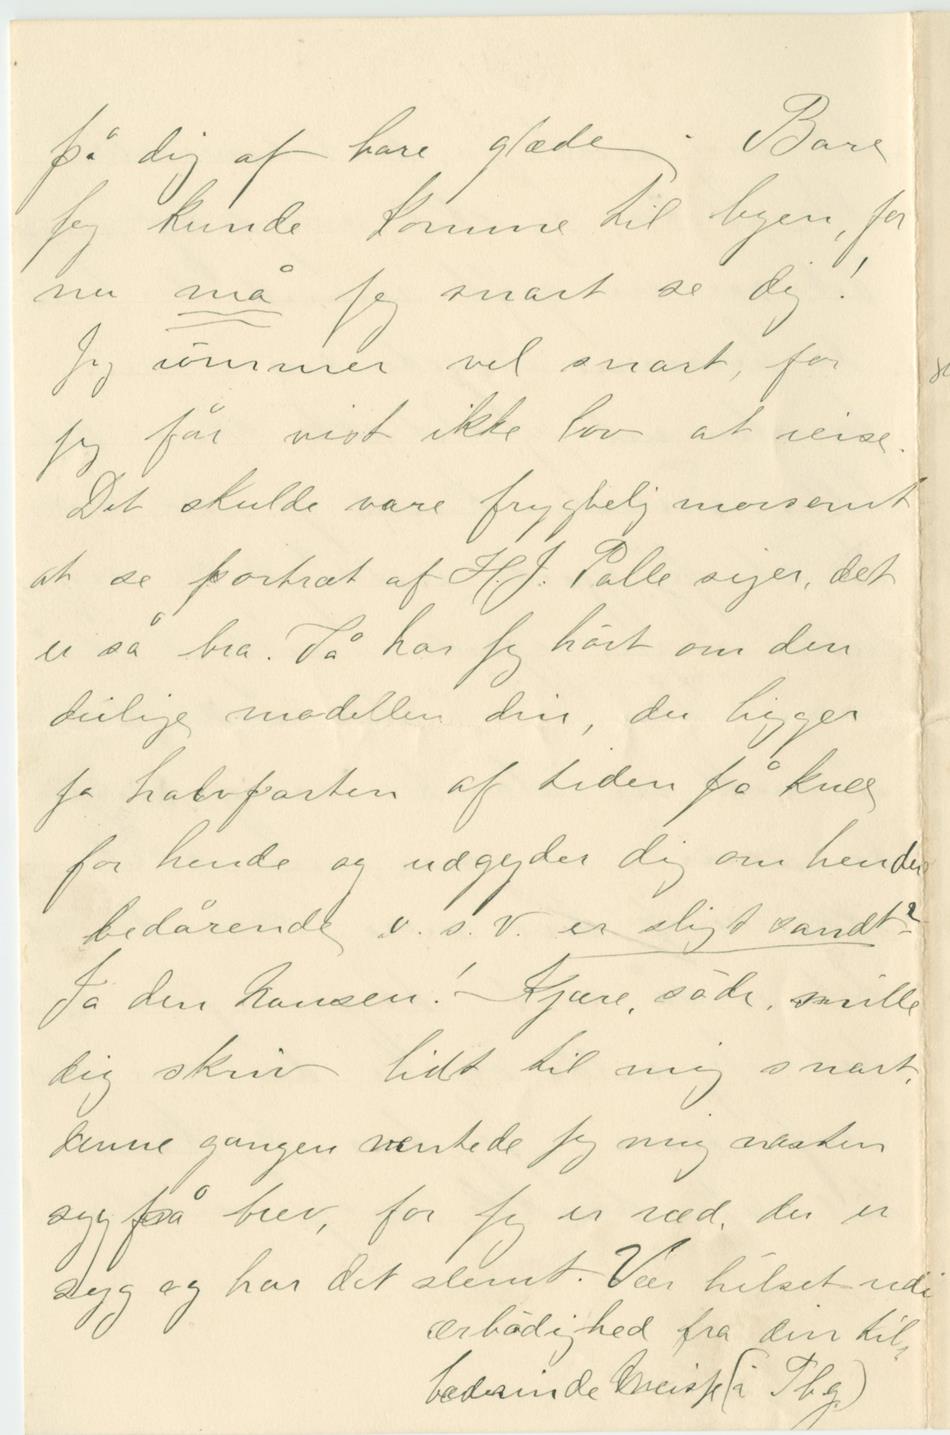 på dig af bare glæde. Bare
jeg kunde komme til byen, for
nu må jeg snart se dig!
Jeg kommer vel snart, for
jeg får vist ikke lov at reise.
Det skulde være frygtelig morsomt
at se portræt af H. J. Palle siger, det
er så bra. Så har jeg hørt om den
deilige modellen din, du ligger
jo halvparten af tiden på knæ
for hende og udgyder dig om hendes
bedårende o. s. v. er sligt sandt?
Ja den Hansen! – Kjære, søde, snille
dig skriv lidt til mig snart,
denne gangen ventede jeg mig næsten
syg på brev, for jeg er ræd, du er
syg og har det slemt. Vær hilset udi
ærbødighed fra din til-
bederinde (i Tbg)